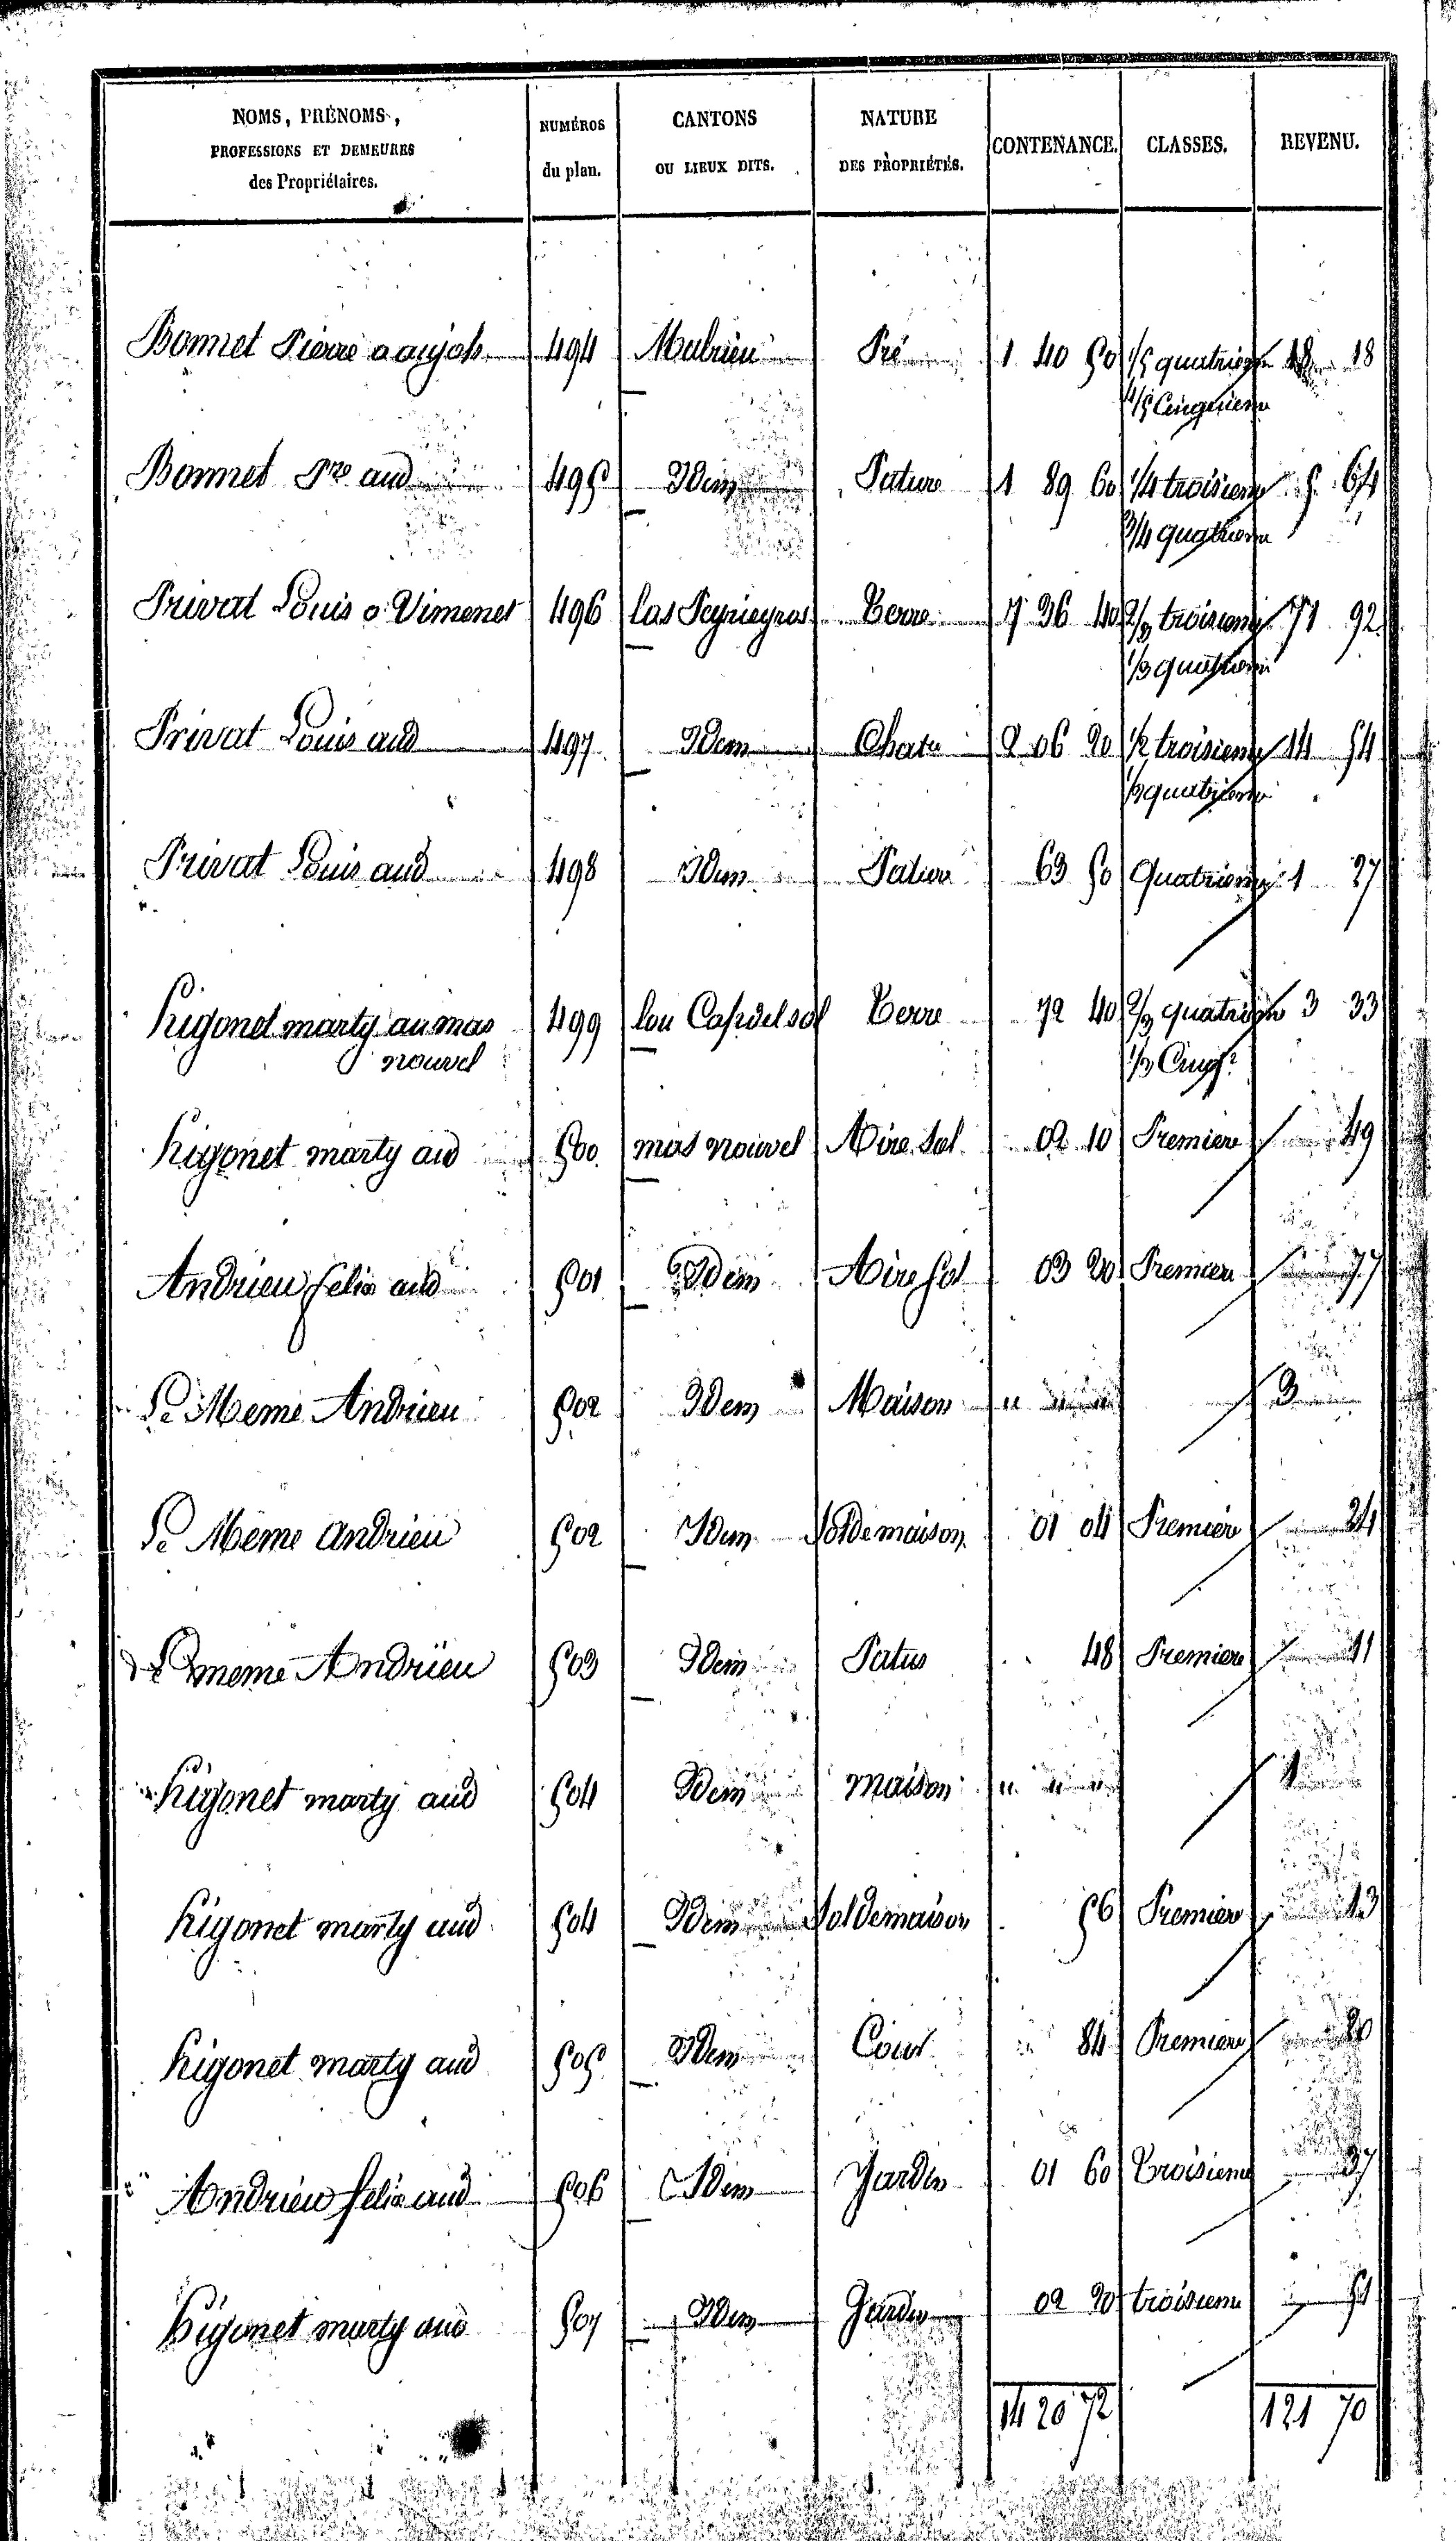 NOMS, PRÉNOMS, PROFESSIONS ET DEMEURES des Propriétaires. NUMÉROS du plan. CANTONS OU LIEUX DITS. NATURE DES PROPRIÉTÉS. CONTENANCE. CLASSES. REVENU.
Bonnet Pierre a aujols 494 Malrieu Pré 1 40 50 1/5 quatrieme 18 18
4/5 Cinquieme
Bonnet Pre aud 495 Idem Pature 1 89 60 1/4 troisieme 5 64
3/4 quatrieme
Privat Louis a Vimenet 496 las Peyrieyras Terre 7 36 40 2/3 troisieme 71 92
1/3 quatrieme
Privat Louis aud 497 Idem 2 06 20 1/2 troisieme 14 54
1/2 quatrieme
Privat Louis aud 498 Idem Pature 63 50 Quatrieme 1 27
Rigonet marty au mas 499 lou Capdelsol Terre 72 40 2/3 quatrieme 3 33
nouvel 1/3 Cinqe
Rigonet marty aud 500 mas nouvel Aire Sol 02 10 Premiere 49
Andrieu felix aud 501 Idem Aire Sol 03 20 Premiere 77
Le Meme Andrieu 502 Idem Maison " " " 3
Le Même andrieu 502 Idem Sol de maison 01 04 Premiere 24
Le meme Andrieu 503 Idem Patus 48 Premiere 11
Rigonet marty aud 504 Idem maison " " " 1
Rigonet marty aud 504 Idem Sol de maison 56 Premiere 13
Rigonet marty aud 505 Idem Cour 84 Premiere 20
Andrieu felix aud 506 Idem Jardin 01 60 Troisieme 37
Rigonet marty aud 507 Idem Jardin 02 20 troisieme 51
14 20 72 121 70